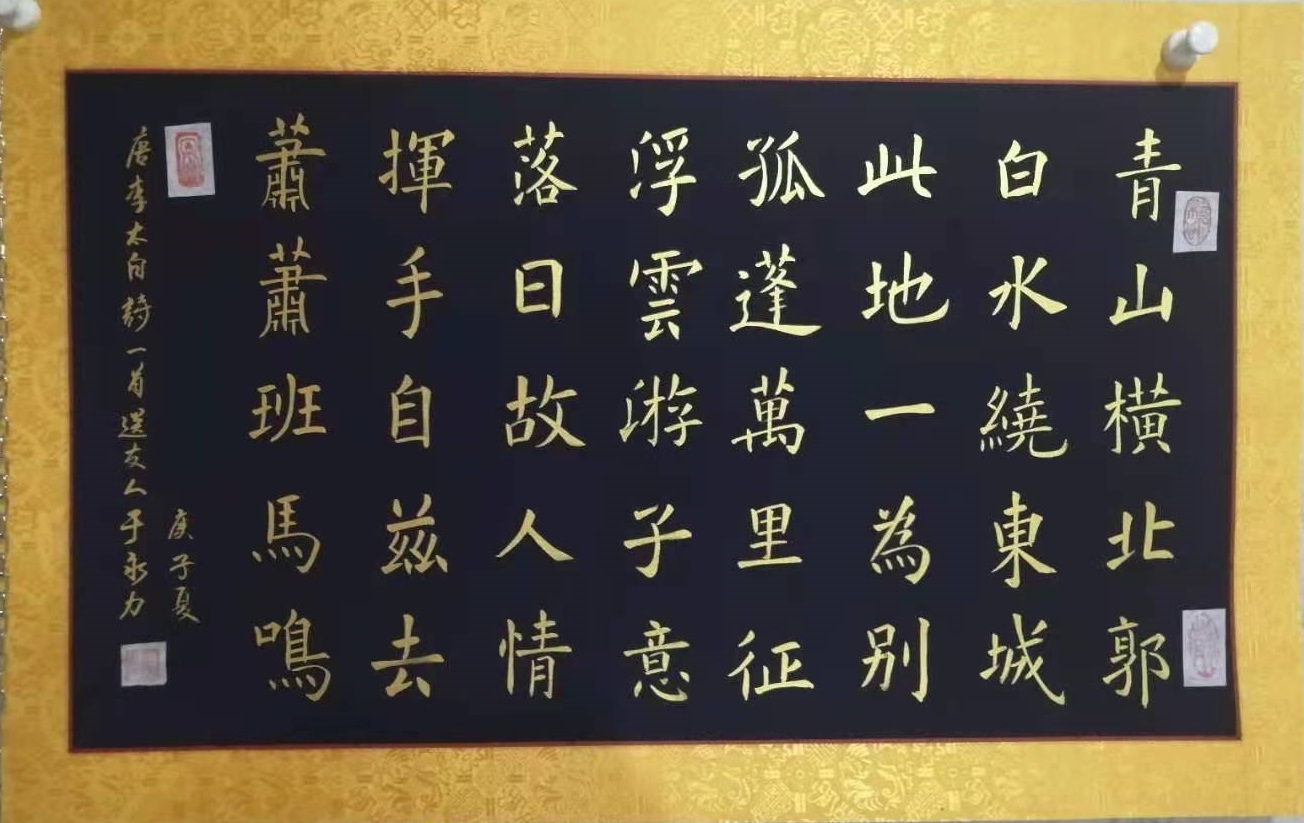 青山橫北郭
白水繞東城
此地一為別
孤蓬萬里征
浮雲游子意
落日故人情
揮手自茲去
蕭蕭班馬鳴
庚子夏
唐李太白詩一首送友人于永力